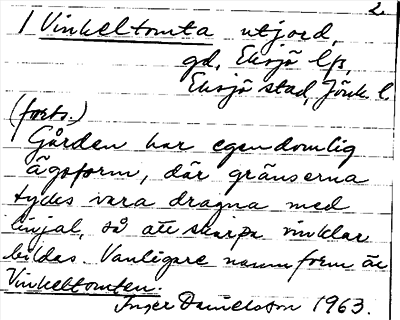 2.
1 Vinkeltomta utjord,
gd, Eksjö lfs,
Eksjö stad, Jönk. l.
(forts.)
Gården har egendomlig
ägoform, där gränserna
tydes vara dragna med
linjal, så att skarpa vinklar
bildas. Vanligare namnform är
Vinkeltomten.
Inger Danielsson 1963.